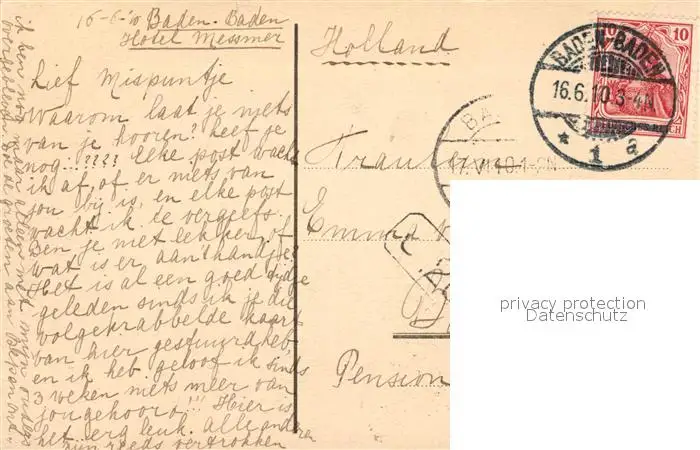 16-6-'10 Baden-Baden
Hotel Messmer
Lief Mispuntje
Waarom laat je niets
van je hooren? Leef je
nog...???? Elke post wacht
ik af, of er niets van
jou bij is, en elke post
wacht ik te vergeefs.
Ben je niet lekker of
wat is er aan 't handje?
Het is al een goed tijdje
geleden sinds ik je die
volgekrabbelde kaart
van hier gestuurd heb,
en ik heb geloof ik sinds
3 weken niets meer van
jou gehoord!!! Hier is
het erg leuk. Alle anderen
zijn reeds vertrokken
ik ben nog maar alleen met mijn
de groeten aan
Holland
Fraulein
Emma
Pension
10 10
BADEN-BADEN
16.6.10.3-4N
* 1 a
BA
17.VI.10.1-2N
privacy protection
Datenschutz